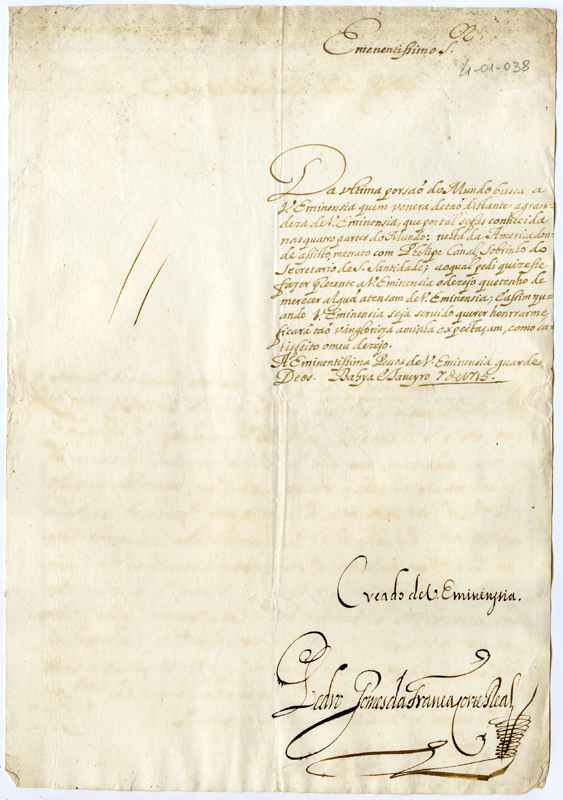 Emenentissimo S.ᴼʳ
4-01-038
Da ultima porsaõ do Mundo busca a
V. Eminensia quem venera detaõ distante agran-
deza de V. Eminensia, que por tal sefas conhecida
nas quatro partes do Mundo: nesta da America don-
de asisto, metrato com Phelipe Canal Sobrinho do
Secretario de S. Santidade; aoqual pedi quizese
fazer prezente a V. Eminensia odezejo que tenho de
merecer algũa atensam de V. Eminensia; Easim qu-
ando V. Eminensia seja servido querer honrrarme,
ficará taõ vangloriosa aminha expectaçam, como sa-
tisfeito omeu dezejo.
A Eminentissima Pesoa de V. Eminensia guarde
Deos. Bahya E Janeyro 7 de 1715.
Creado de V. Eminensia.
Pedro Gomes da Franca Corte Real